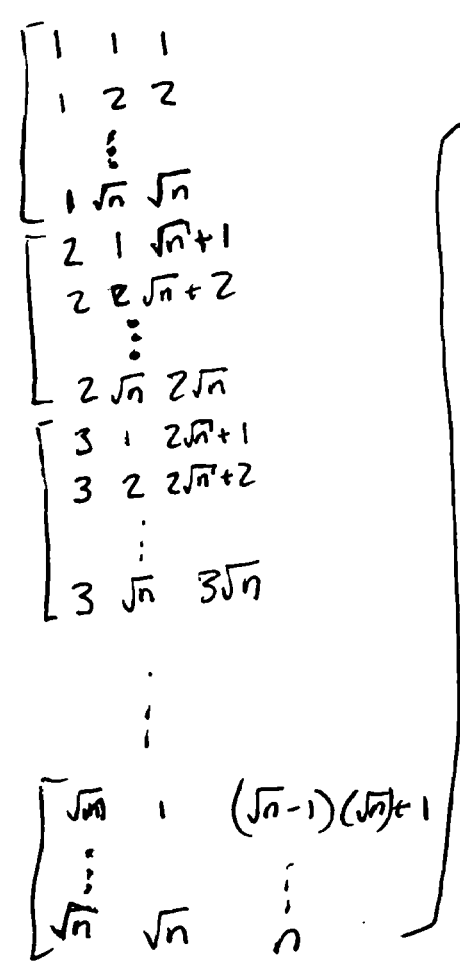 1 1 1
1 2 2
⋮
1 √n √n
2 1 √n+1
2 2 √n+2
⋮
2 √n 2√n
3 1 2√n+1
3 2 2√n+2
⋮
3 √n 3√n
⋮
√n 1 (√n-1)(√n)+1
⋮ ⋮
√n √n n